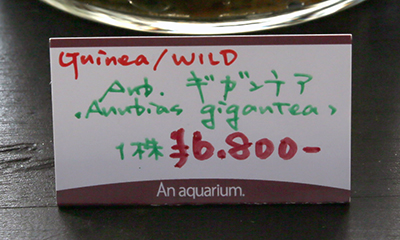 Guinea/WILD
Anb. ギガンテア
〈Anubias gigantea〉
1株 ¥6.800-
An aquarium.